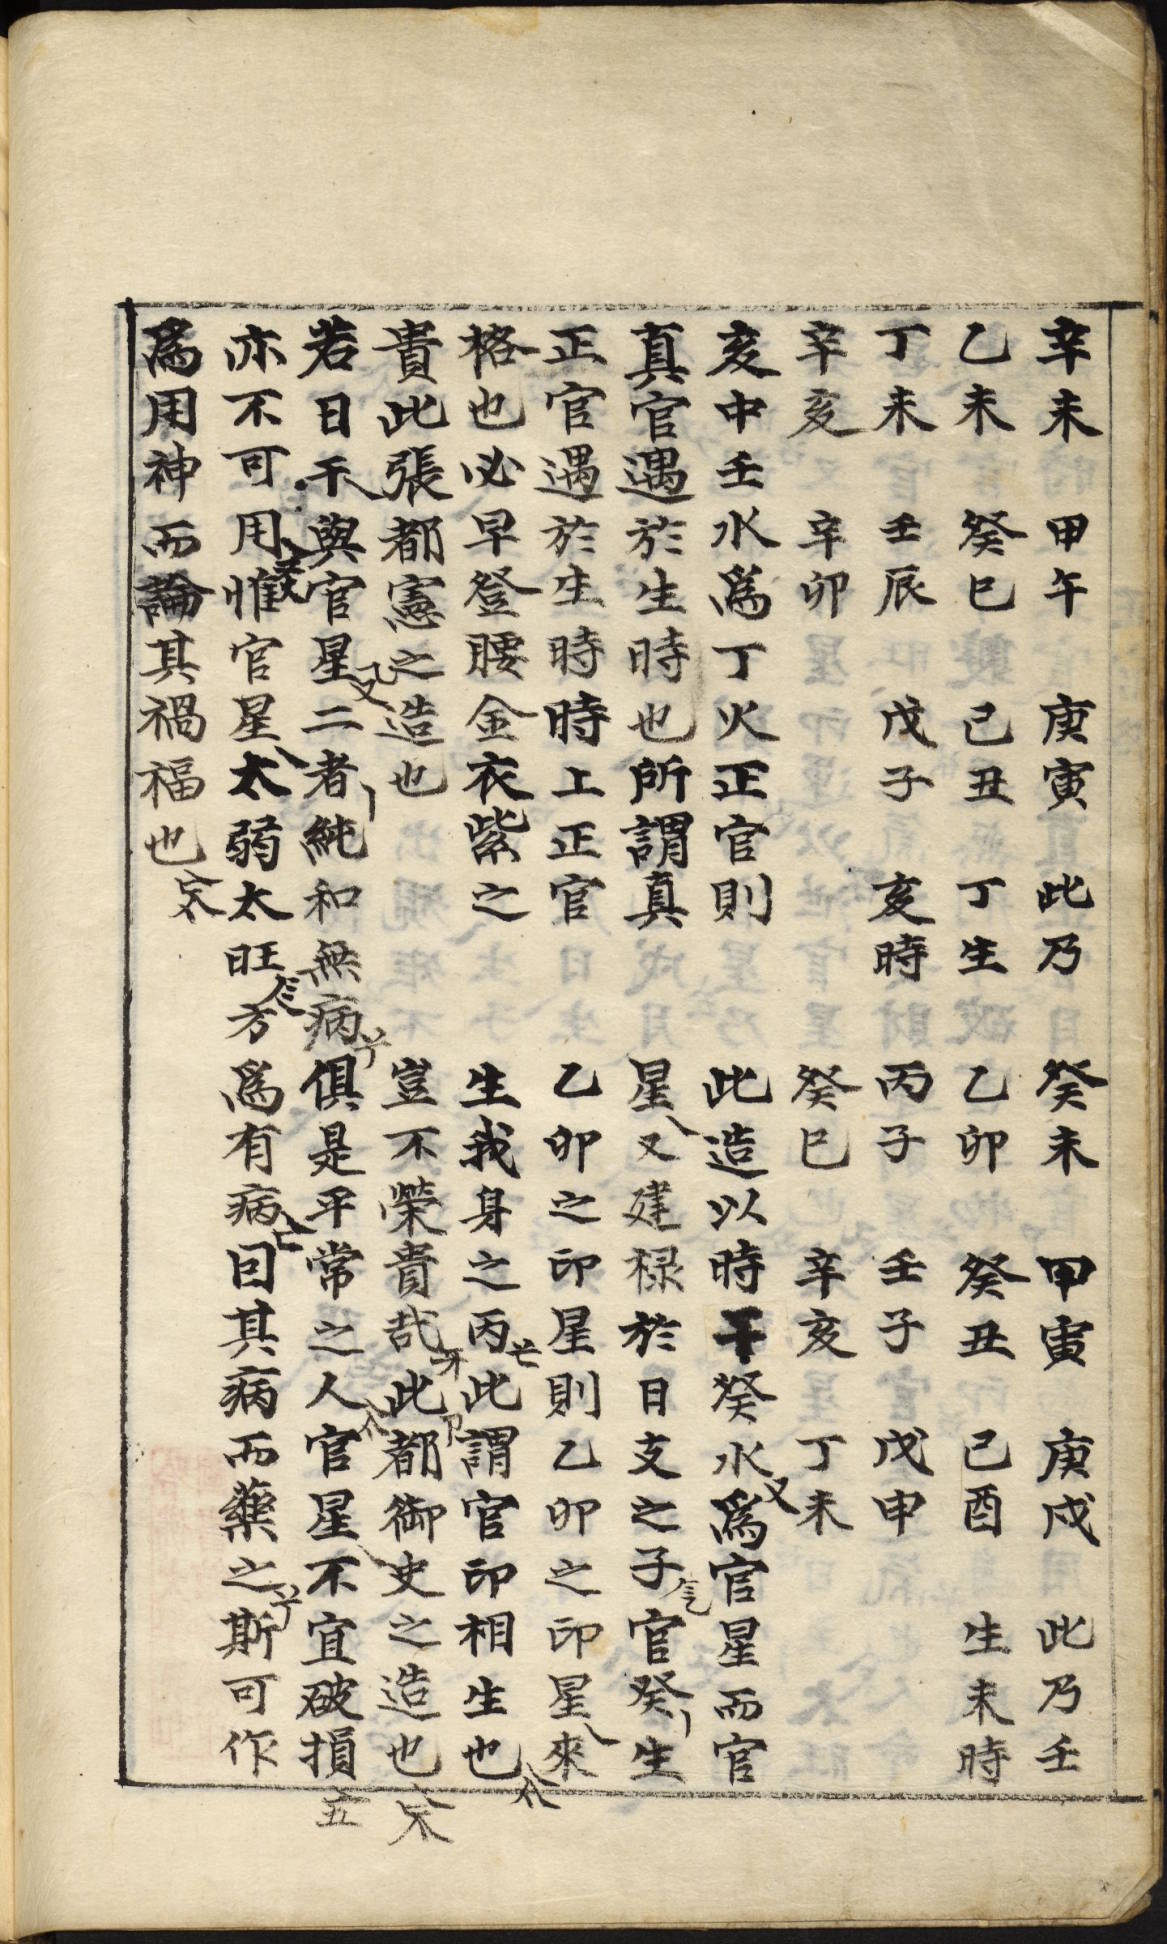 辛未 甲午 庚寅 此乃 癸未 甲寅 庚戌 此乃壬
乙未 癸巳 己丑 丁生 乙卯 癸丑 己酉 生未時
丁未 壬辰 戊子 亥時 丙子 壬子 戊申
辛亥 辛卯 癸巳 辛亥 丁未
亥中壬水爲丁火正官則 此造以時干癸水爲官星而官
真官遇於生時也所謂真 星又建禄於日支之子官癸生
正官遇於生時時上正官 乙卯之印星則乙卯之印星來
格也必早登腰金衣紫之 生我身之丙此謂官印相生也
貴此張都憲之造也 豈不榮貴哉此都御史之造也
若日干與官星二者純和無病俱是平常之人官星不宜破損
亦不可用惟官星太弱太旺方爲有病因其病而藥之斯可作
爲用神而論其禍福也